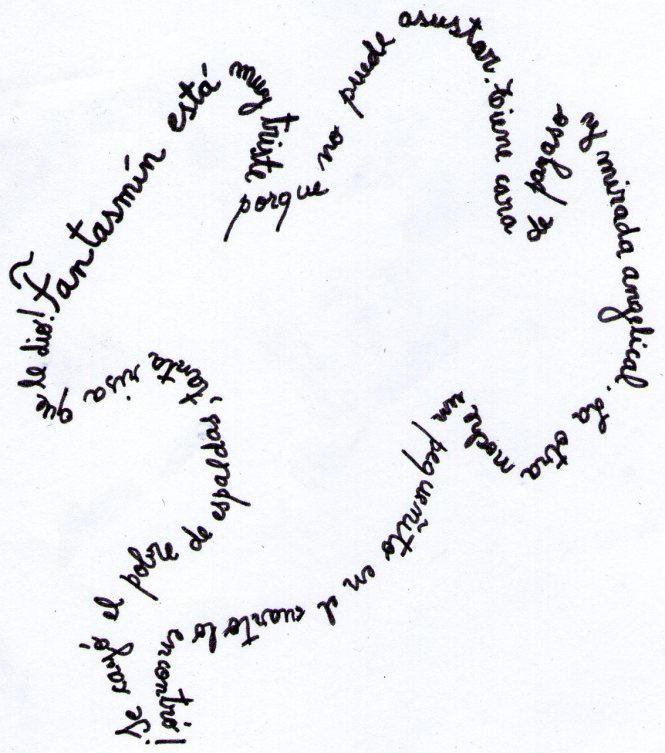 Fantasmín está muy triste porque no puede asustar. Tiene cara de payaso y mirada angelical. La otra noche un pequeñito en el cuarto lo encontró! ¡Se cayó el pobre de espaldas, tanta risa que le dio!